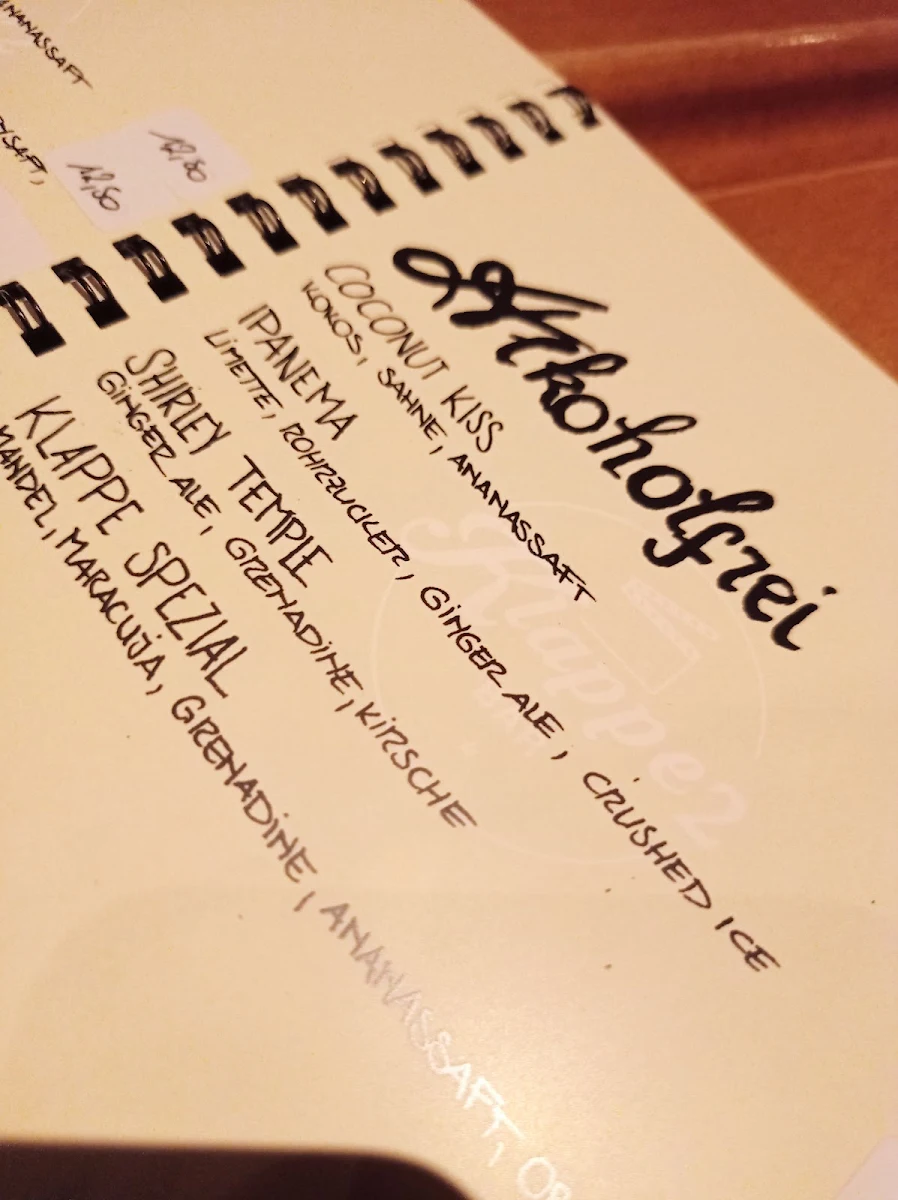 ANANASSAFT
12,80
12,80
Alkoholfrei
COCONUT KISS
KOKOS, SAHNE, ANANASSAFT
IPANEMA
LIMETTE, ROHRZUCKER, GINGER ALE, CRUSHED ICE
SHIRLEY TEMPLE
GINGER ALE, GRENADINE, KIRSCHE
KLAPPE SPEZIAL
MANDEL, MARACUJA, GRENADINE, ANANASSAFT,
Klappe2